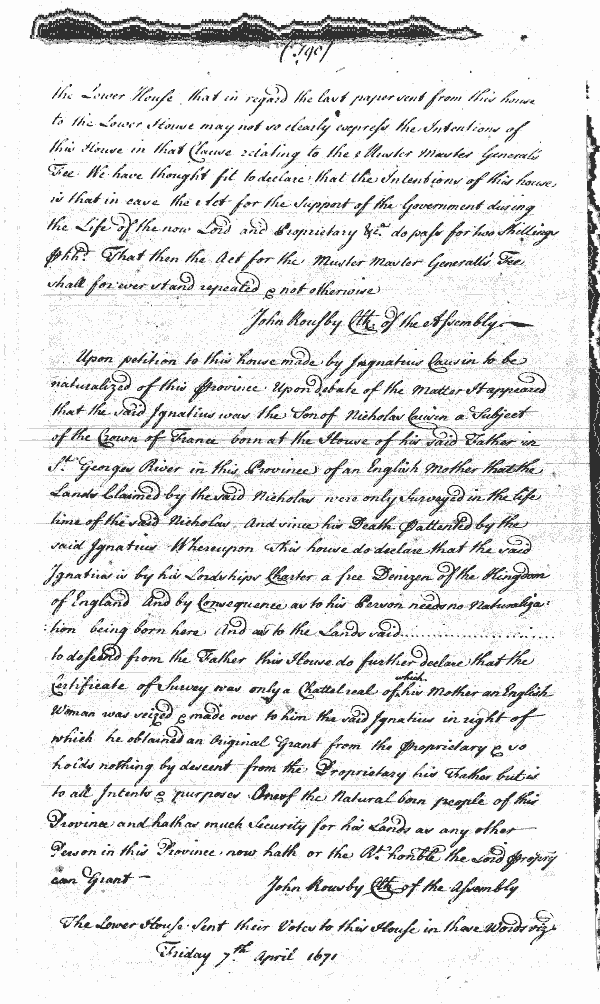 (190)
the Lower House that in regard the last paper sent from this house
to the Lower House may not so clearly express the Intentions of
this House in that Clause relating to the Muster Master Generall's
Fee We have thought fit to declare that the Intentions of this house
is that in case the Act for the Support of the Government during
the Life of the now Lord and Proprietary &c.a do pass for two shillings
℘hhd. That then the Act for the Muster Master Generall's Fee
shall for ever stand repealed & not otherwise
John Rousby Clk of the Assembly
Upon petition to this house made by Ignatius Causin to be
naturalized of this Province Upon debate of the Matter It appeared
that the said Ignatius was the Son of Nicholas Causin a Subject
of the Crown of France born at the House of his said Father in
St. Georges River in this Province of an English Mother that the
Lands Claimed by the said Nicholas were only Surveyed in the life
time of the said Nicholas And since his Death Pattented by the
said Ignatius Whereupon this house do declare that the said
Ignatius is by his Lordships Charter a free Denizen of the Kingdom
of England And by Consequence as to his Person needs no Naturaliza=
tion being born here And as to the Lands said
to descend from the Father this House do further declare that the
Certificate of Survey was only a Chattel real of which his Mother an English
Woman was seized & made over to him the said Ignatius in right of
which he obtained an Original Grant from the Proprietary & so
holds nothing by descent from the Proprietary his Father but is
to all Intents & purposes One of the Natural born people of this
Province and hath as much Security for his Lands as any other
Person in this Province now hath or the Rt. honble the Lord Proptry
can Grant
John Rousby Clk of the Assembly
The Lower House Sent their Votes to this House in these Words viz.
Friday 7th April 1671